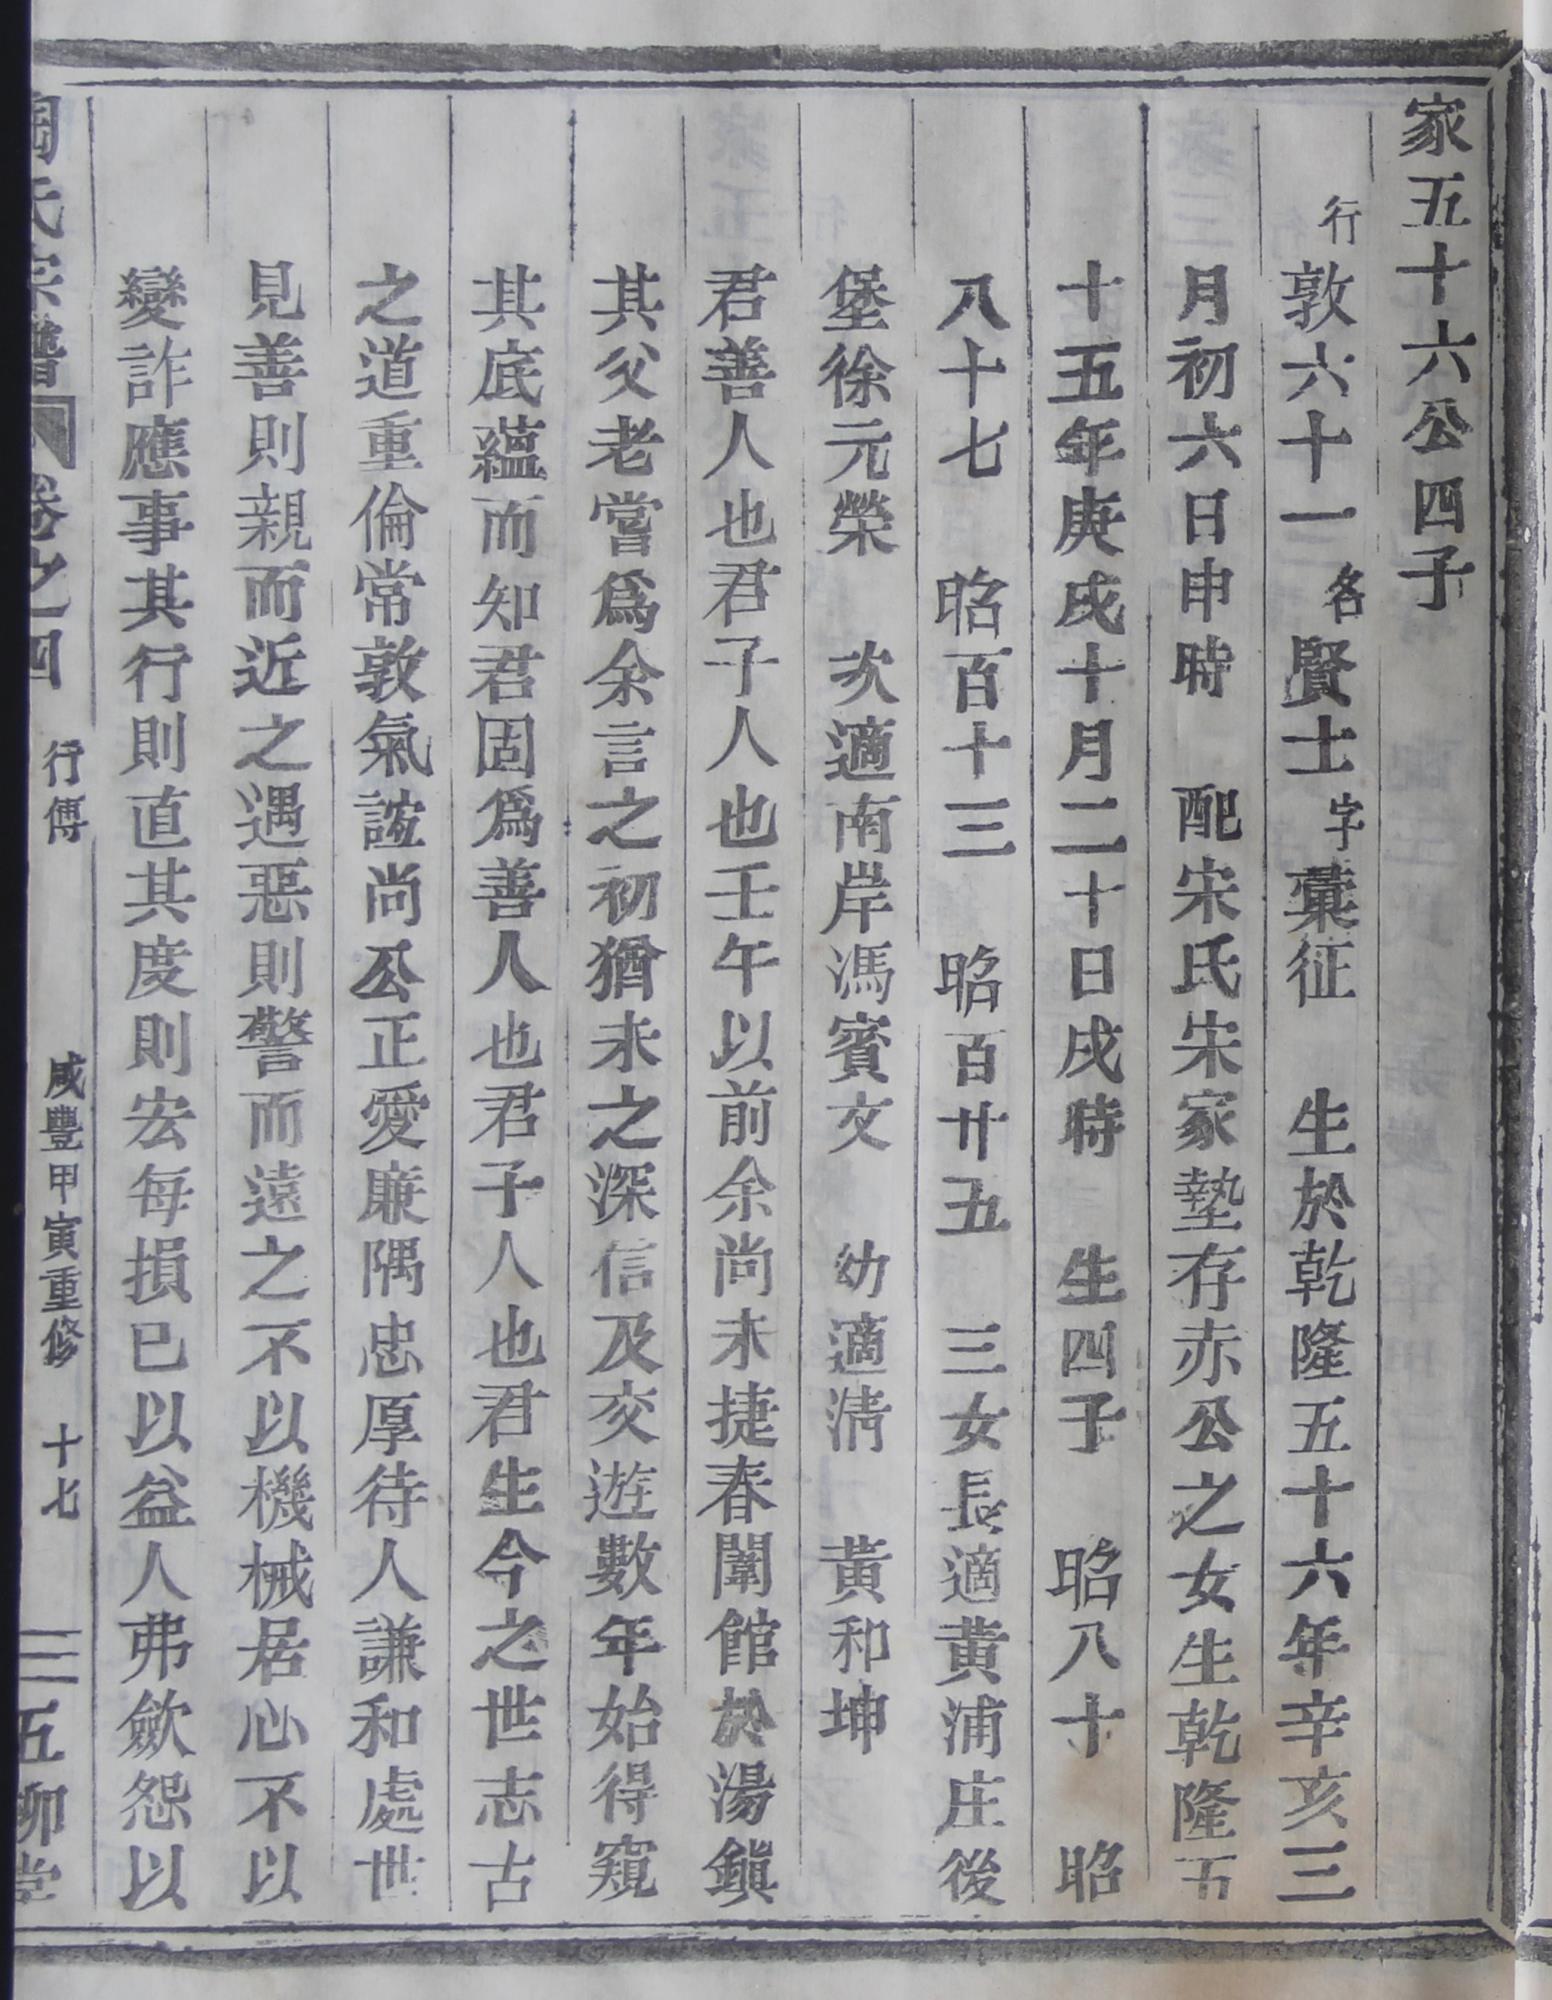 家五十六公四子
行敦六十一名賢士字彙征　生於乾隆五十六年辛亥三
月初六日申時　配宋氏宋家墊存赤公之女生乾隆五
十五年庚戌十月二十日戌時　生四子　昭八十　昭
八十七　昭百十三　昭百廿五　三女長適黃浦庄後
堡徐元榮　次適南岸馮賓文　幼適淸　黃和坤
君善人也君子人也壬午以前余尚未捷春闈館於湯鎮
其父老嘗爲余言之初猶未之深信及交遊數年始得窺
其底蘊而知君固爲善人也君子人也君生今之世志古
之道重倫常敦氣誼尚公正愛廉隅忠厚待人謙和處世
見善則親而近之遇惡則警而遠之不以機械居心不以
變詐應事其行則直其度則宏每損已以益人弗歛怨以
陶氏宗譜　卷之四　行傳　咸豐甲寅重修　十七　五柳堂